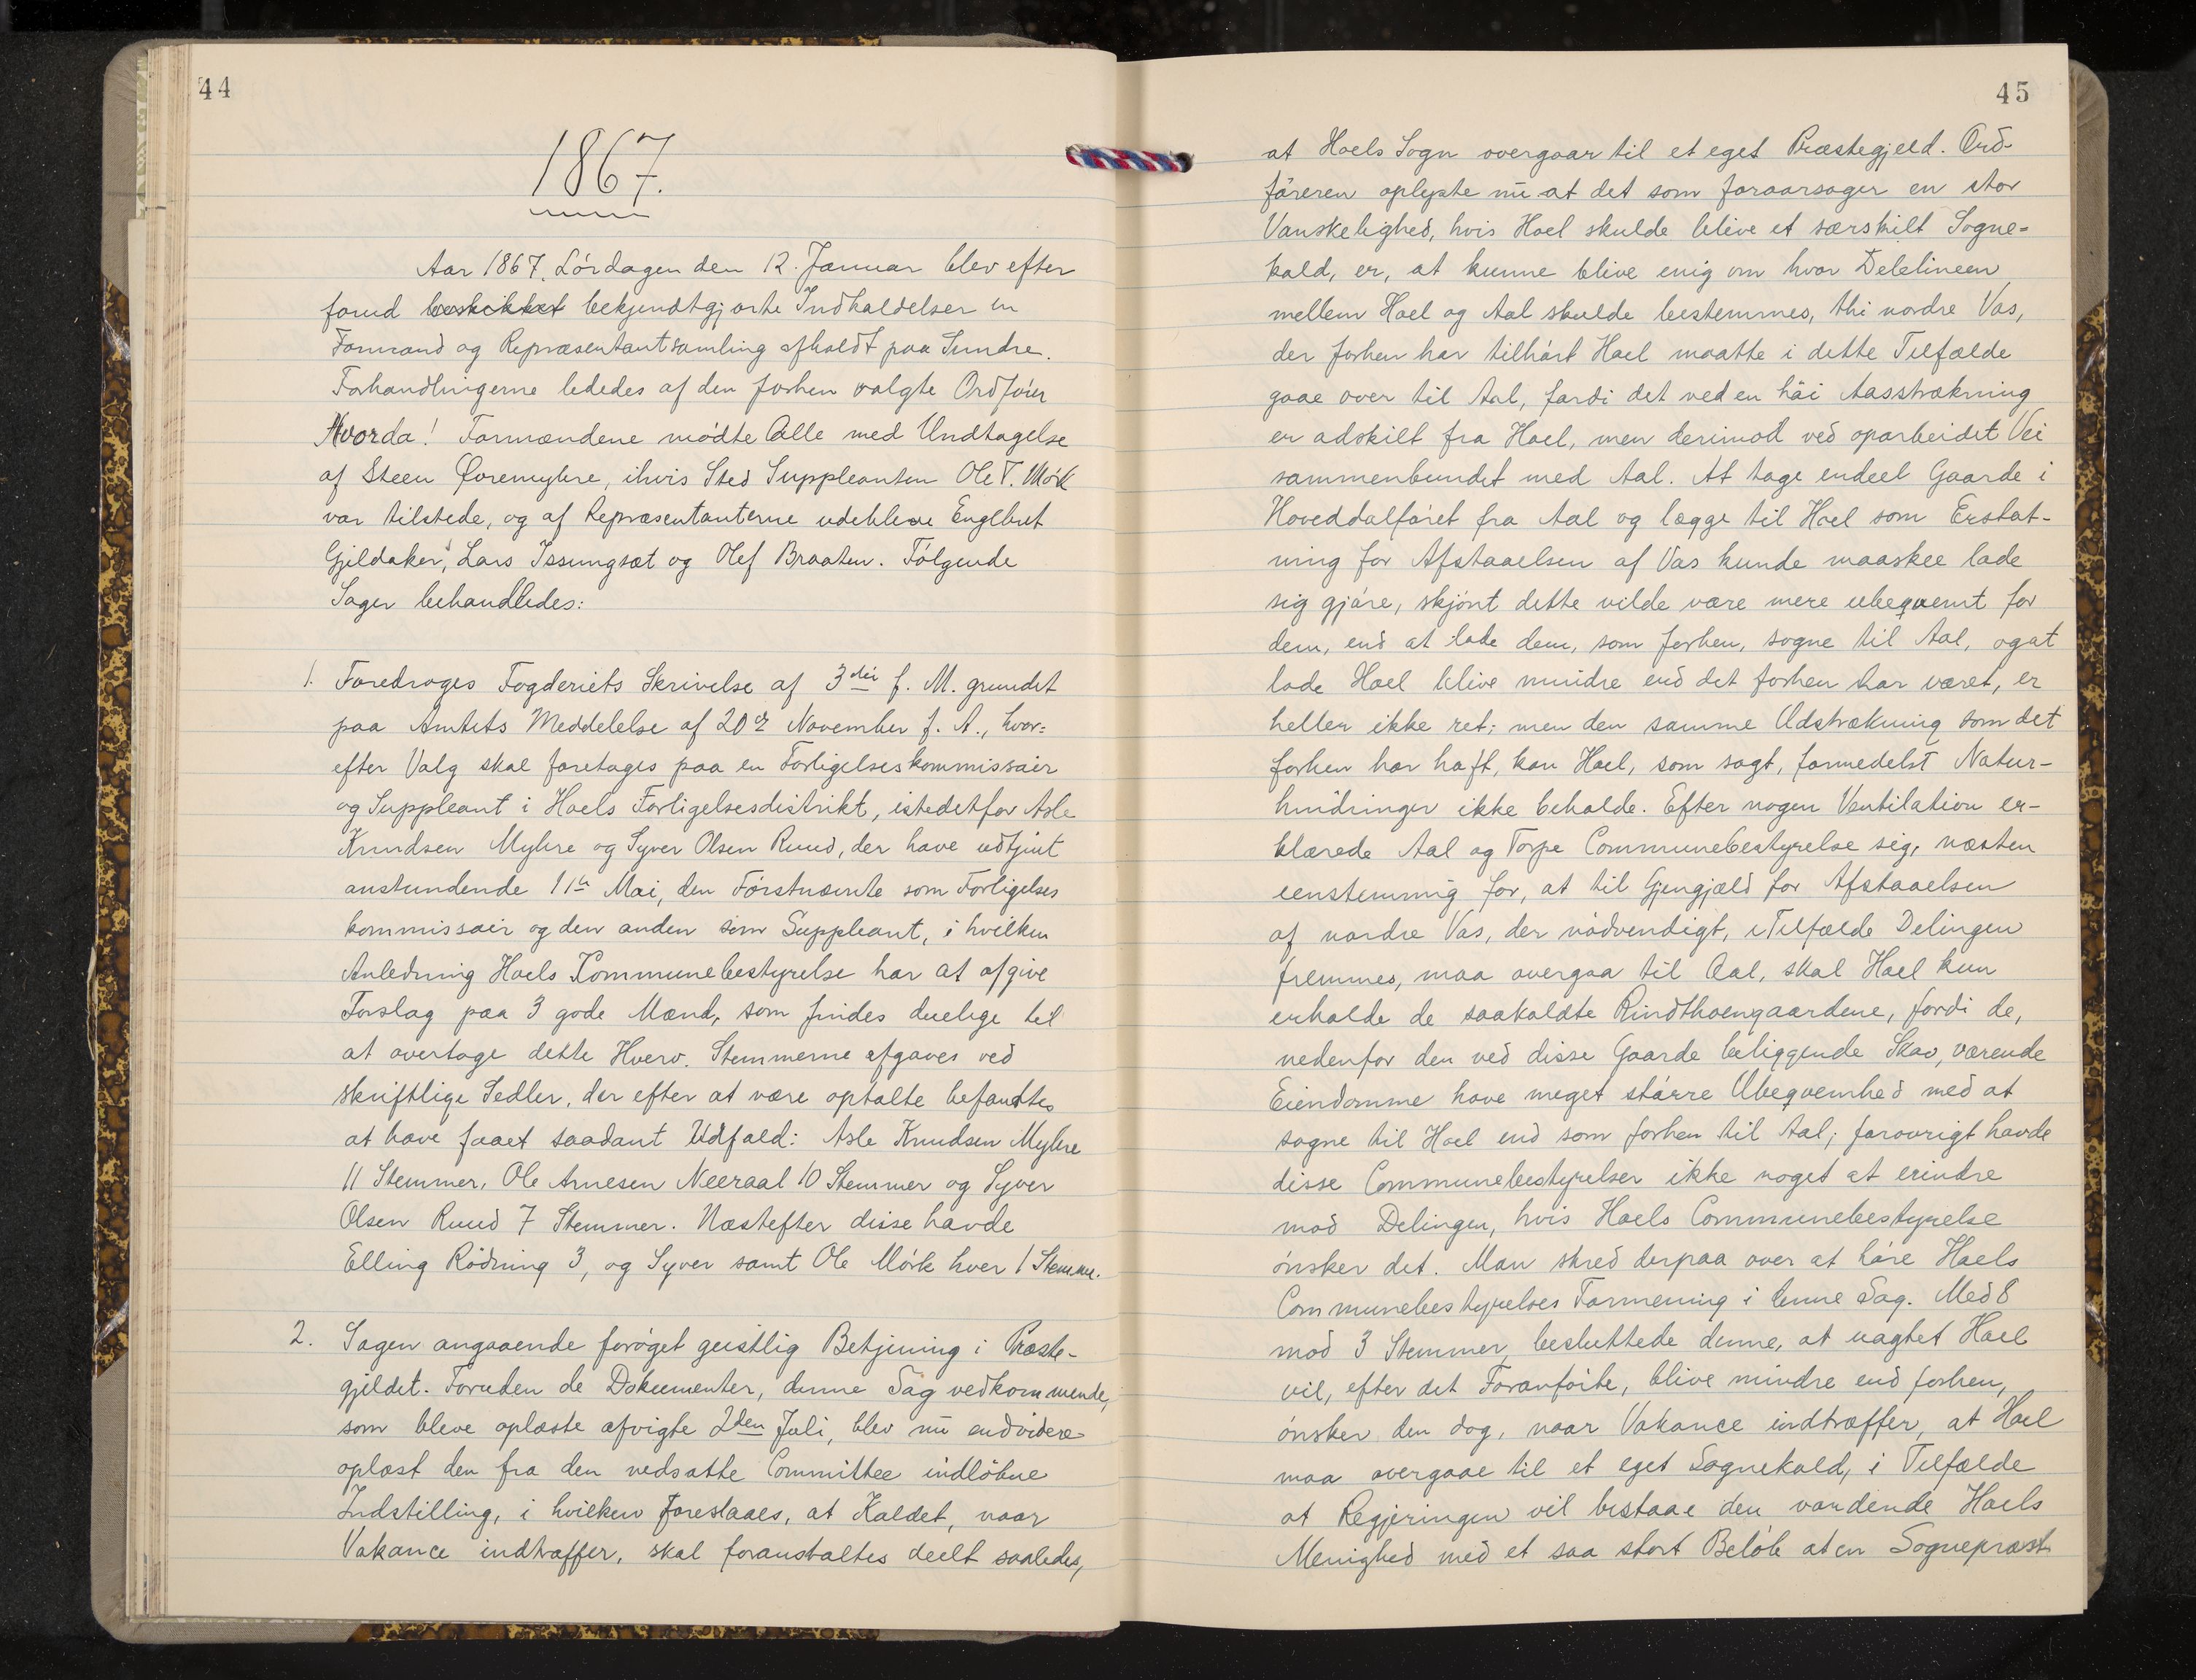 44
1867.
Aar 1867, Lördagen den 12. Januar blev efter
forud beskikket bekjendtgjorte Indkaldelser en
Formand og Repræsentantsamling afholdt paa Sundre.
Forhandlingerne lededes af den forhen valgte Ordföier
Nvorda! Formændene mödte Alle med Undtagelse
af Steen Överemyhre, ihvis Sted Suppleanten Ole T. Mörk
var tilstede, og af Repræsentanterne udebleve Englbret
Gjeldaker, Lars Issungsæt og Olef Braaten. Fölgende
Sager behandledes:
1. Foredroges Fogderiets Skrivelse af 3die f. M. grundet
paa Amtets Meddelelse af 20de November f. A., hvor=
efter Valg skal foretages paa en Forligelseskommissair
og Suppleant i Hoels Forligelsesdistrikt, istedetfor Asle
Knudsen Myhre og Syver Olsen Ruud, der have udtjent
anstundende 11te Mai, den Förstnævnte som Forligelses
kommissair og den anden som Suppleant, i hvilken
Anledning Hoels Kommunebestyrelse har at afgive
Forslag paa 3 gode Mænd, som findes duelige til
at overtage dette Hverv. Stemmerne afgaves ved
skriftlige Sedler, der efter at være optalte befandtes
at have faaet saadant Udfald: Asle Knudsen Myhre
11 Stemmer, Ole Arnesen Neeraal 10 Stemmer og Syver
Olsen Ruud 7 Stemmer. Næstefter disse havde
Elling Rödning 3, og Syver samt Ole Mörk hver 1 Stemme.
2. Sagen angaaende foröget geistlig Betjening i Præste-
gjeldet. Foruden de Dokumenter, denne Sag vedkommende,
som bleve oplæste afvigte 2den Juli, blev nu endvidere
oplæst den fra den nedsatte Committee indlöbne
Indstilling, i hvilken foreslaaes, at Kaldet, naar
Vakance indtræffer, skal foranstaltes deelt saaledes,
45
at Hoels Sogn overgaar til et eget Præstegjeld. Ord-
föreren oplyste nu at det som foraarsager en stor
Vanskelighed, hvis Hoel skulde blive et særskilt Sogne=
kald, er, at kunne blive enig om hvor Delelineen
mellem Hoel og Aal skulde bestemmes, thi nordre Vas,
der forhen har tilhört Hoel maatte i dette Tilfælde
gaae over til Aal, fordi det ved en höi Aasstrækning
er adskilt fra Hoel, men derimod ved oparbeidet Vei
sammenbundet med Aal. At tage endeel Gaarde i
Hoveddalföret fra Aal og lægge til Hoel som Erstat-
ning for Afstaaelsen af Vas kunde maaskee lade
sig gjöre, skjönt dette vilde være mere ubeqvemt for
dem, end at lade dem, som forhen, sogne til Aal, og at
lade Hoel blive mindre end det forhen har været, er
heller ikke ret; men den samme Udstrækning som det
forhen har haft, kan Hoel, som sagt, formedelst Natur-
hindringer ikke beholde. Efter nogen Ventilation er-
klærede Aal og Torpe Communebestyrelse sig, næsten
eenstemmig for, at til Gjengjæld for Afstaaelsen
af nordre Vas, der nödvendigt, i Tilfælde Delingen
fremmes, maa overgaa til Aal, skal Hoel kun
erholde de saakaldte Rindthoengaardene, fordi de,
nedenfor den ved disse Gaarde beliggende Skov, værende
Eiendomme have meget större Ubeqvemhed med at
sogne til Hoel end som forhen til Aal; forovrigt havde
disse Communebestyrelser ikke noget at erindre
mod Delingen, hvis Hoels Communebestyrelse
önsker det. Man skred derpaa over at höre Hoels
Communebestyrelses Formening i denne Sag. Med 8
mod 3 Stemmer besluttede denne, at uagtet Hoel
vil, efter det Foranföite, blive mindre end forhen,
önsker den dog, naar Vakance indtræffer, at Hoel
maa overgaae til et eget Sognekald, i Tilfælde
at Regjeringen vil bistaae den vordende Hoels
Menighed med et saa stort Belöb at en Sognepræst